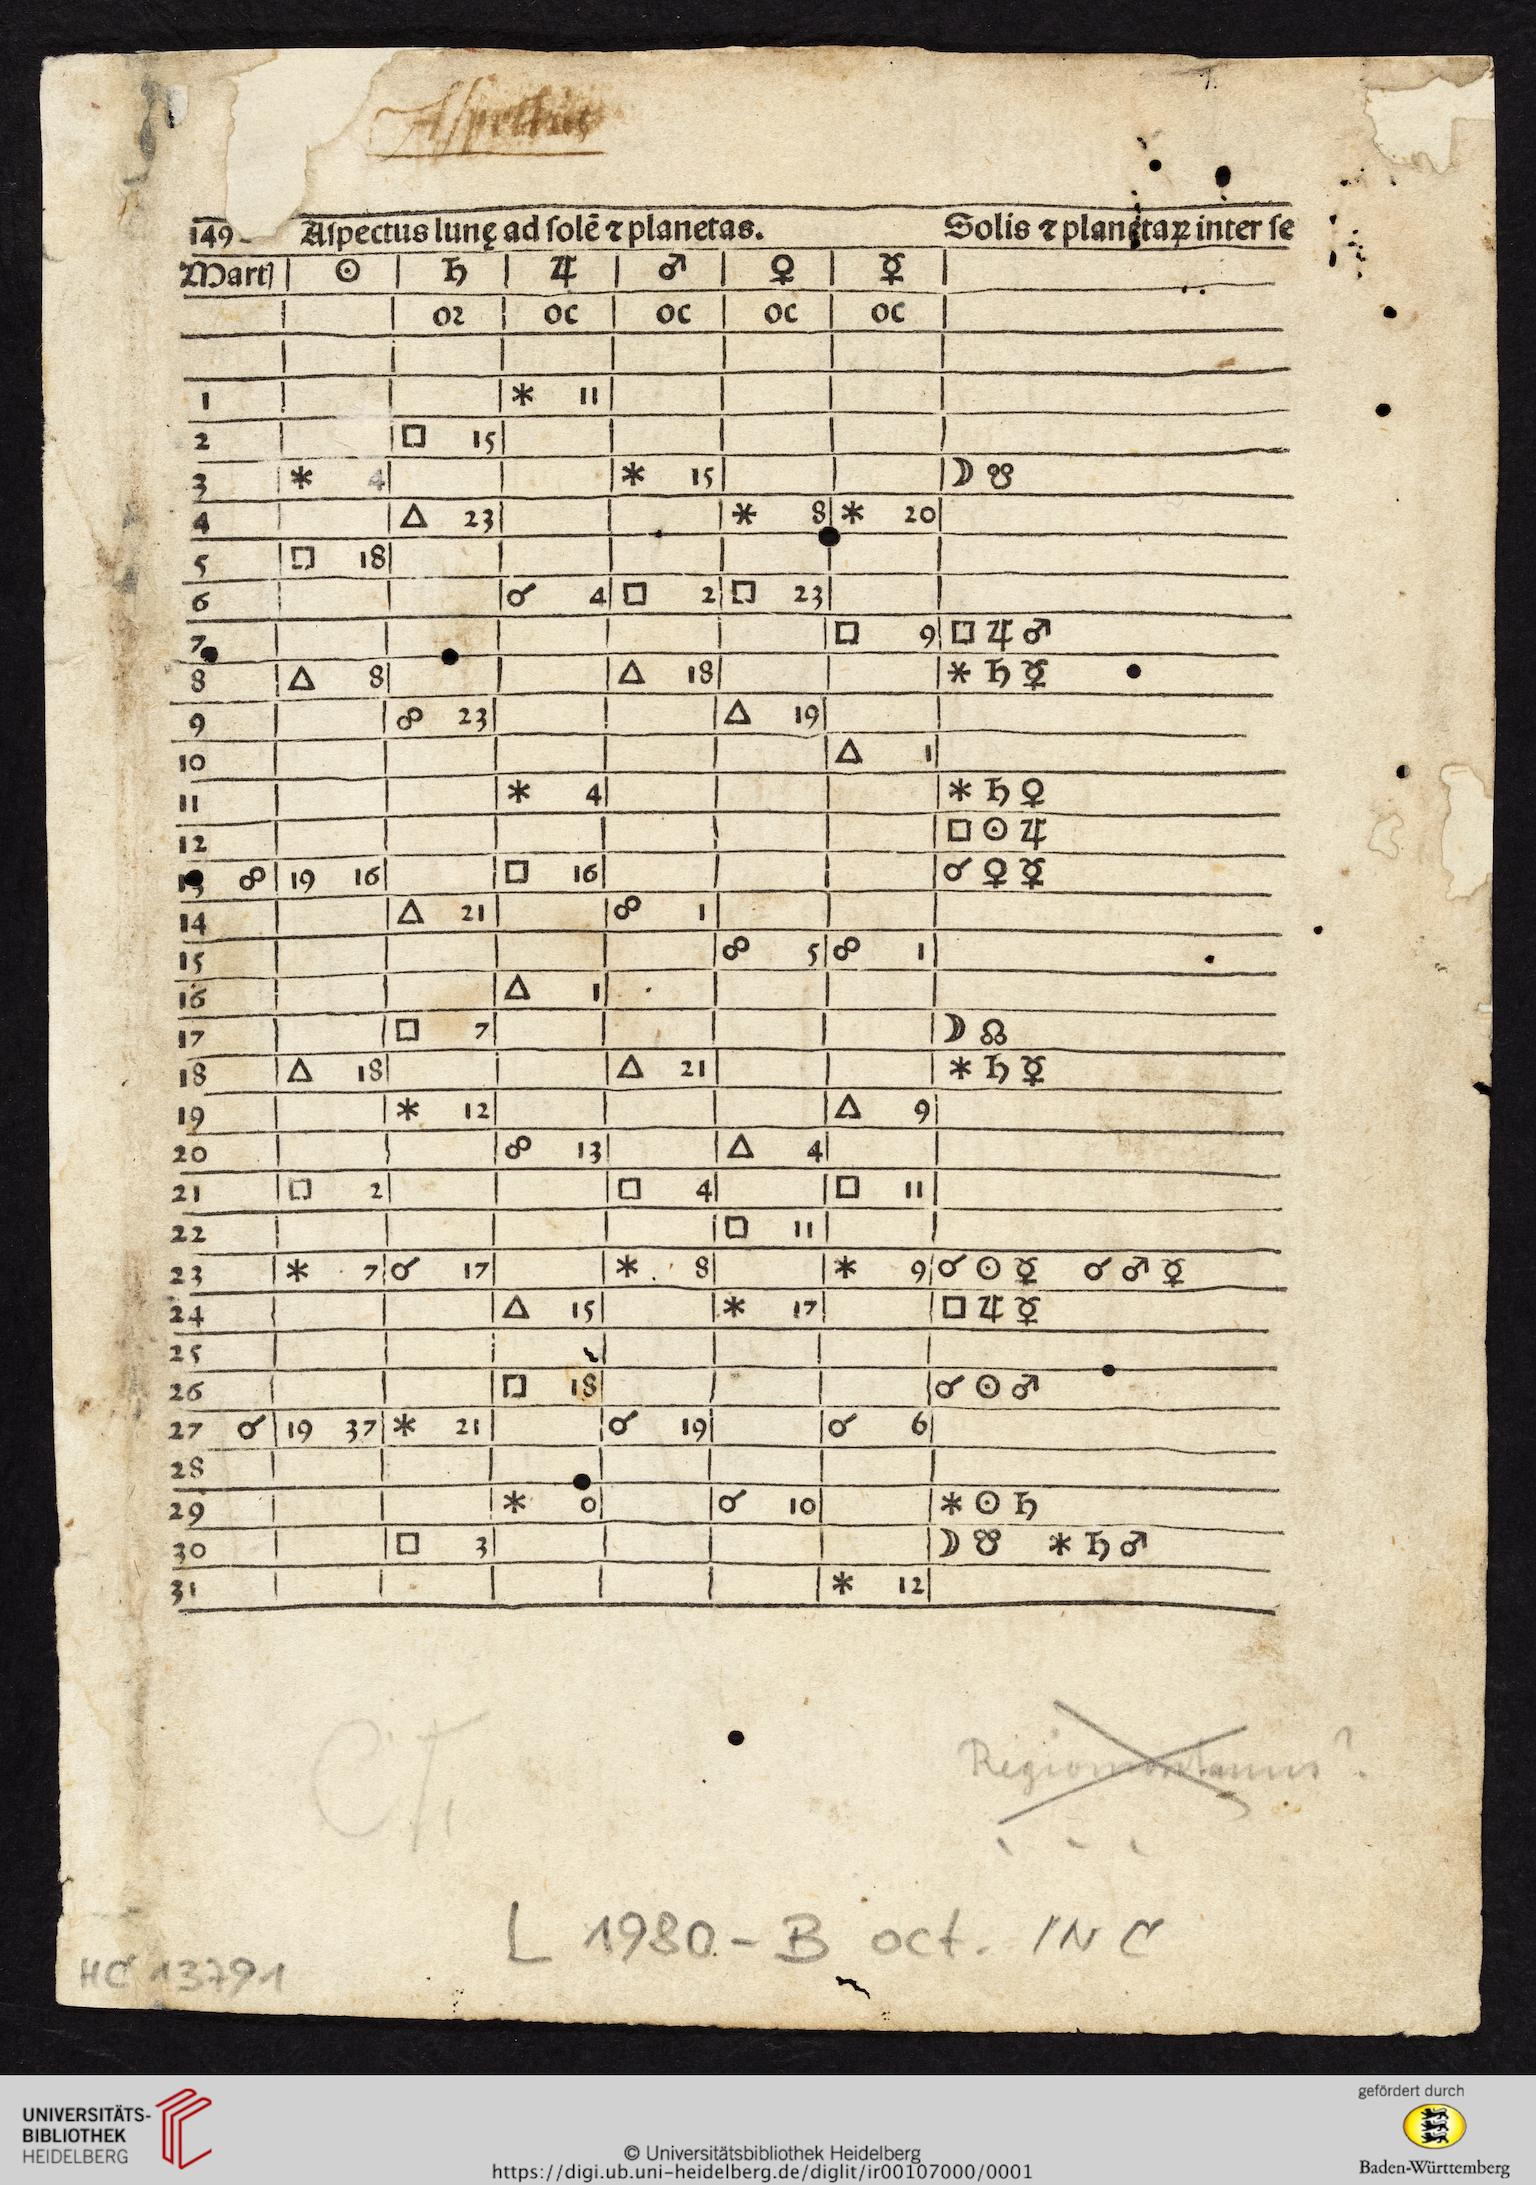 Aspectus
149 Aſpectus lunę ad ſolē ⁊ planetas. Solis ⁊ planetaꝝ inter ſe
Martiꝰ ☉ ♄ ♃ ♂ ♀ ☿
oꝛ oc oc oc oc
1 ⚹ 11
2 □ 15
3 ⚹ 4 ⚹ 15 ☽ ☋
4 △ 23 ⚹ 8 ⚹ 20
5 □ 18
6 ☌ 4 □ 2 □ 23
7 □ 9 □ ♃ ♂
8 △ 8 △ 18 ⚹ ♄ ☿
9 ☍ 23 △ 19
10 △ 1
11 ⚹ 4 ⚹ ♄ ♀
12 □ ☉ ♃
13 ☍ 19 16 □ 16 ☌ ♀ ☿
14 △ 21 ☍ 1
15 ☍ 5 ☍ 1
16 △ 1
17 □ 7 ☽ ☊
18 △ 18 △ 21 ⚹ ♄ ☿
19 ⚹ 12 △ 9
20 ☍ 13 △ 4
21 □ 2 □ 4 □ 11
22 □ 11
23 ⚹ 7 ☌ 17 ⚹ 8 ⚹ 9 ☌ ☉ ☿ ☌ ♂ ☿
24 △ 15 ⚹ 17 □ ♃ ☿
25
26 □ 18 ☌ ☉ ♂
27 ☌ 19 37 ⚹ 21 ☌ 19 ☌ 6
28
29 ⚹ 0 ☌ 10 ⚹ ☉ ♄
30 □ 3 ☽ ☋ ⚹ ♄ ♂
31 ⚹ 12
Regiomontanus?
L 1980-B oct. INC
HC 13791
UNIVERSITÄTS-
BIBLIOTHEK
HEIDELBERG
© Universitätsbibliothek Heidelberg
https://digi.ub.uni-heidelberg.de/diglit/ir00107000/0001
gefördert durch
Baden-Württemberg